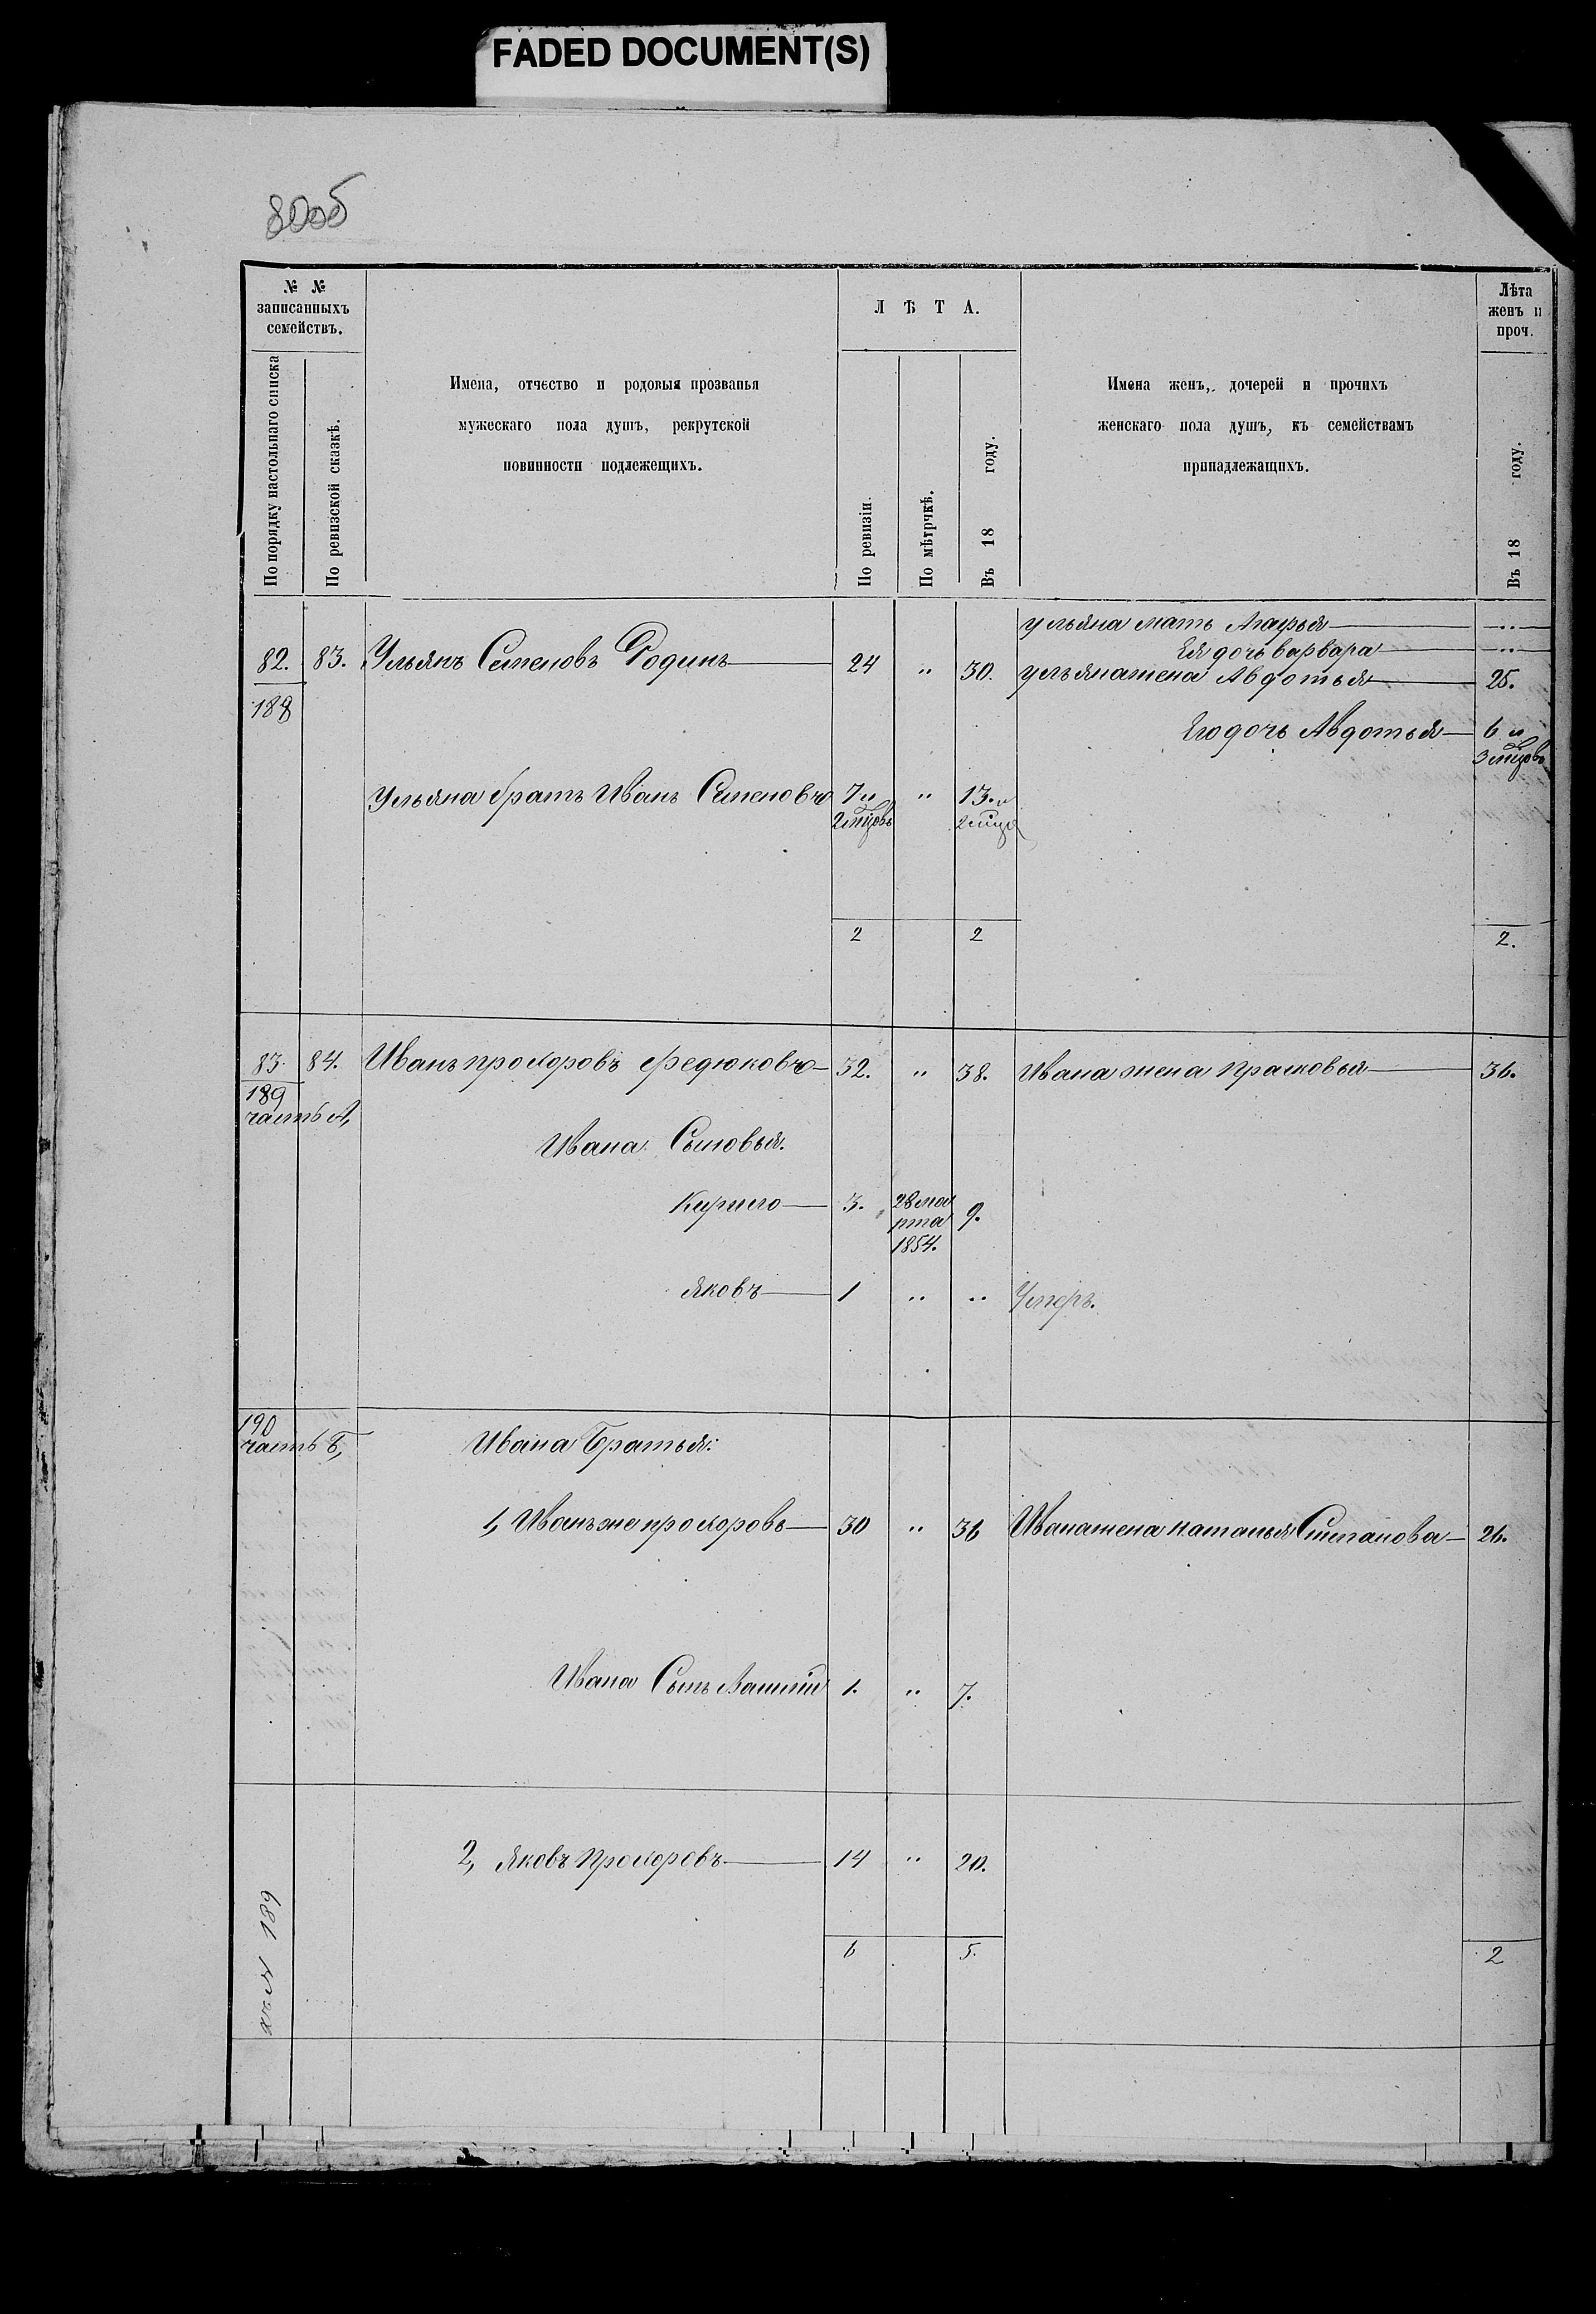 FADED DOCUMENT(S)
80об
№ №
записанныхъ
семействъ.
По порядку настольнаго списка
По ревизской сказкѣ.
Имена, отчество и родовыя прозванья
мужескаго пола душъ, рекрутской
повинности подлежещихъ.
Л Ѣ Т А.
По ревизіи.
По мѣтрчкѣ.
Въ 18 году.
Имена женъ, дочерей и прочихъ
женскаго пола душъ, къ семействамъ
принадлежащихъ.
Лѣта
женъ и
проч.
Въ 18 году.
ульяна мать Агафья — "
Ея дочь варвара — "
82. 83. Ульянъ Семеновъ Родинъ — 24 " 30. ульянажена Авдотья — 25.
188
Его дочь Авдотья — 6 и
3 мцовъ
Ульяна братъ Иванъ Семеновъ 7 и " 13. и
2 мцовъ 2 мцо
2 2 2.
83. 84. Иванъ прохоровъ Федюковъ — 32. " 38. Ивана жена прасковья — 36.
189
часть А,
Ивана Сыновья.
Кирило — 3. 28 ма
рта 9.
1854.
Яковъ — 1 " " Умеръ.
190
часть Б,
Ивана Братья:
1, Иванъ же прохоровъ — 30 " 36 Иванажена наталья Степанова — 26.
Ивана Сынъ 1. " 7.
2, Яковъ Прохоровъ — 14 " 20.
къ № 189
6 5. 2